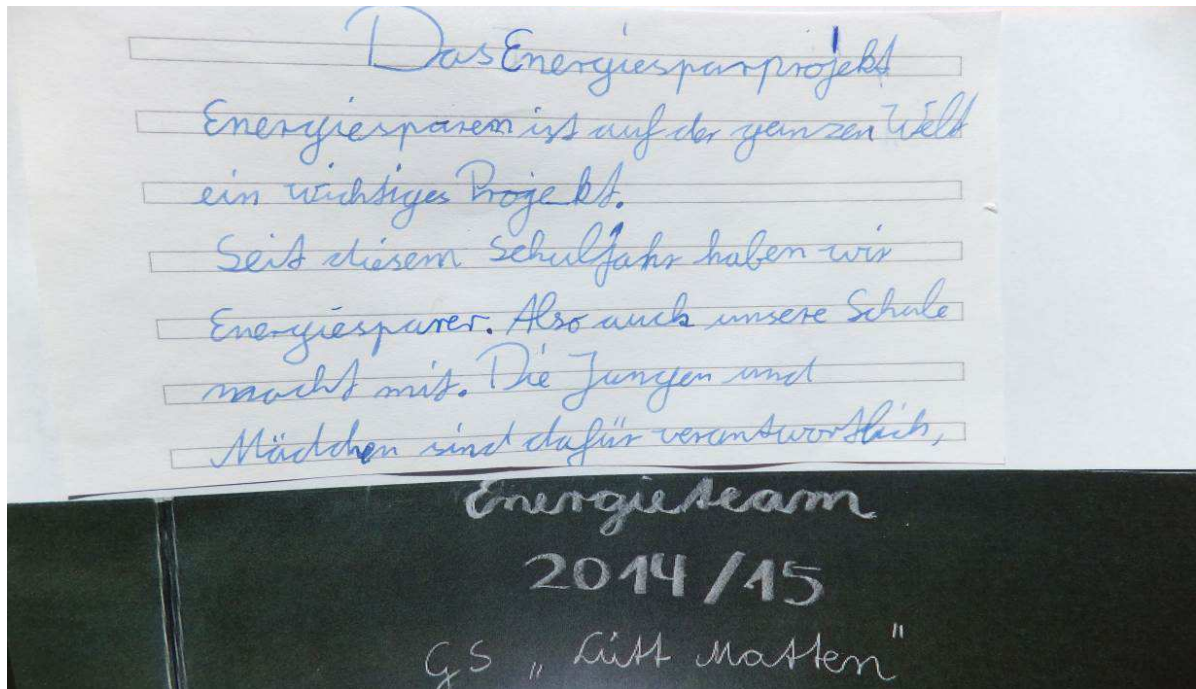 Das Energiesparprojekt
Energiesparen ist auf der ganzen Welt
ein wichtiges Projekt.
Seit diesem Schuljahr haben wir
Energiesparer. Also auch unsere Schule
macht mit. Die Jungen und
Mädchen sind dafür verantwortlich,
Energieteam
2014/15
GS „Lütt Matten"